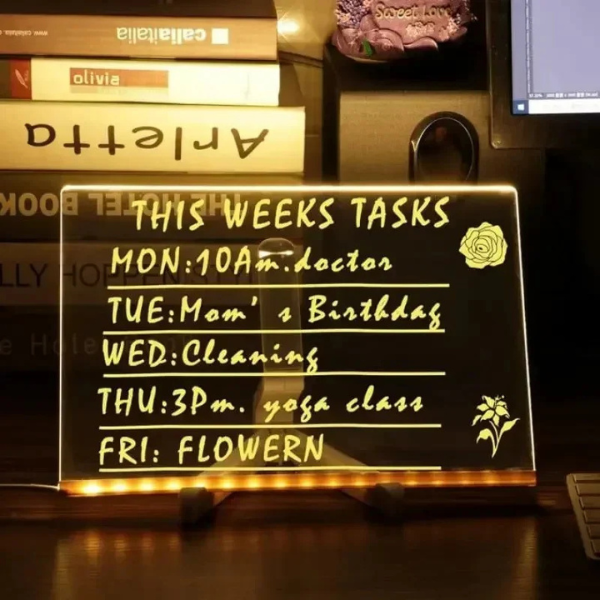 caliaitalia
olivia
Arletta
THE HOTEL BOOK
Sweet Love
THIS WEEKS TASKS
MON:10Am.doctor
TUE:Mom's Birthdag
WED:Cleaning
THU:3Pm. yoga class
FRI: FLOWERN